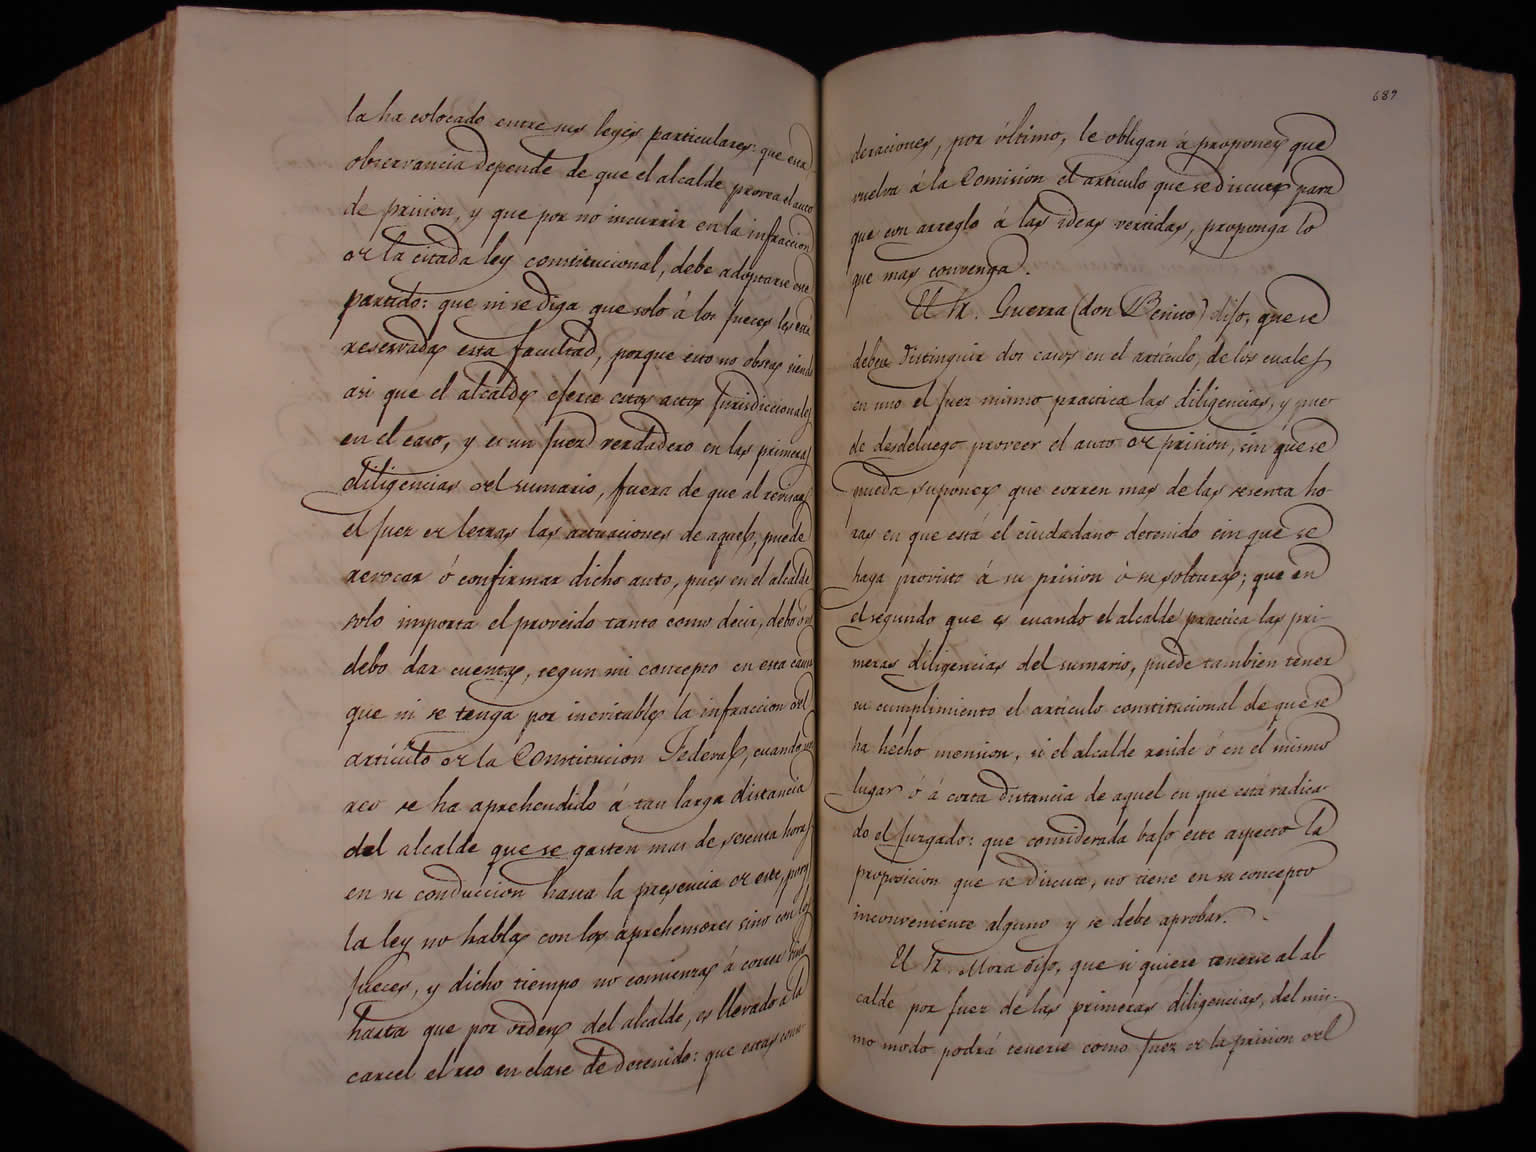 la ha colocado entre sus leyes particulares: que en su
observancia depende de que el alcalde provea el auto
de prision, y que por no incurrir en la infraccion
de la citada ley constitucional, debe adoptarse este
partido: que ni se diga que solo á los jueces les está
reservada esta facultad, porque esto no obsta, siendo
asi que el alcalde ejerce estos actos jurisdiccionales
en el caso, y es un juez verdadero en las primeras
diligencias del sumario, fuera de que al revisar
el juez de letras las actuaciones de aquel, puede
revocar ó confirmar dicho auto, pues en el alcalde
solo importa el proveido tanto como decir, debo ó no
debo dar cuenta, segun mi concepto en esta causa
que ni se tenga por inevitable la infraccion del
artículo de la Constitucion Federal, cuando un
reo se ha aprehendido á tan larga distancia
del alcalde que se gasten mas de sesenta horas
en su conduccion hasta la presencia de este, porq.
la ley no habla con los aprehensores sino con los
jueces, y dicho tiempo no comienza á correr sino
hasta que por orden del alcalde, es llevado a la
carcel el reo en clase de detenido: que estas consi-
689
deraciones, por último, le obligan á proponer que
vuelva á la Comision el artículo que se discute para
que con arreglo á las ideas vertidas, proponga lo
que mas convenga.
El Sr. Guerra (don Benito) dijo, que se
deben distinguir dos casos en el artículo, de los cuales
en uno el juez mismo practica las diligencias, y pue-
de desdeluego proveer el auto de prision, sin que se
pueda suponer que corren mas de las sesenta ho-
ras en que está el ciudadano detenido sin que se
haga provisto á su prision ó su soltura; que en
el segundo que es cuando el alcalde practica las pri-
meras diligencias del sumario, puede tambien tener
su cumplimiento el artículo constitucional de que se
ha hecho mension, si el alcalde reside ó en el mismo
lugar ó á corta distancia de aquel en que está radica-
do el juzgado: que considerada bajo este aspecto la
proposicion que se discute, no tiene en su concepto
inconveniente alguno y se debe aprobar.
El Sr. Mora dijo, que si quiere tenerse al al-
calde por juez de las primeras diligencias, del mis-
mo modo podrá tenerse como juez de la prision del